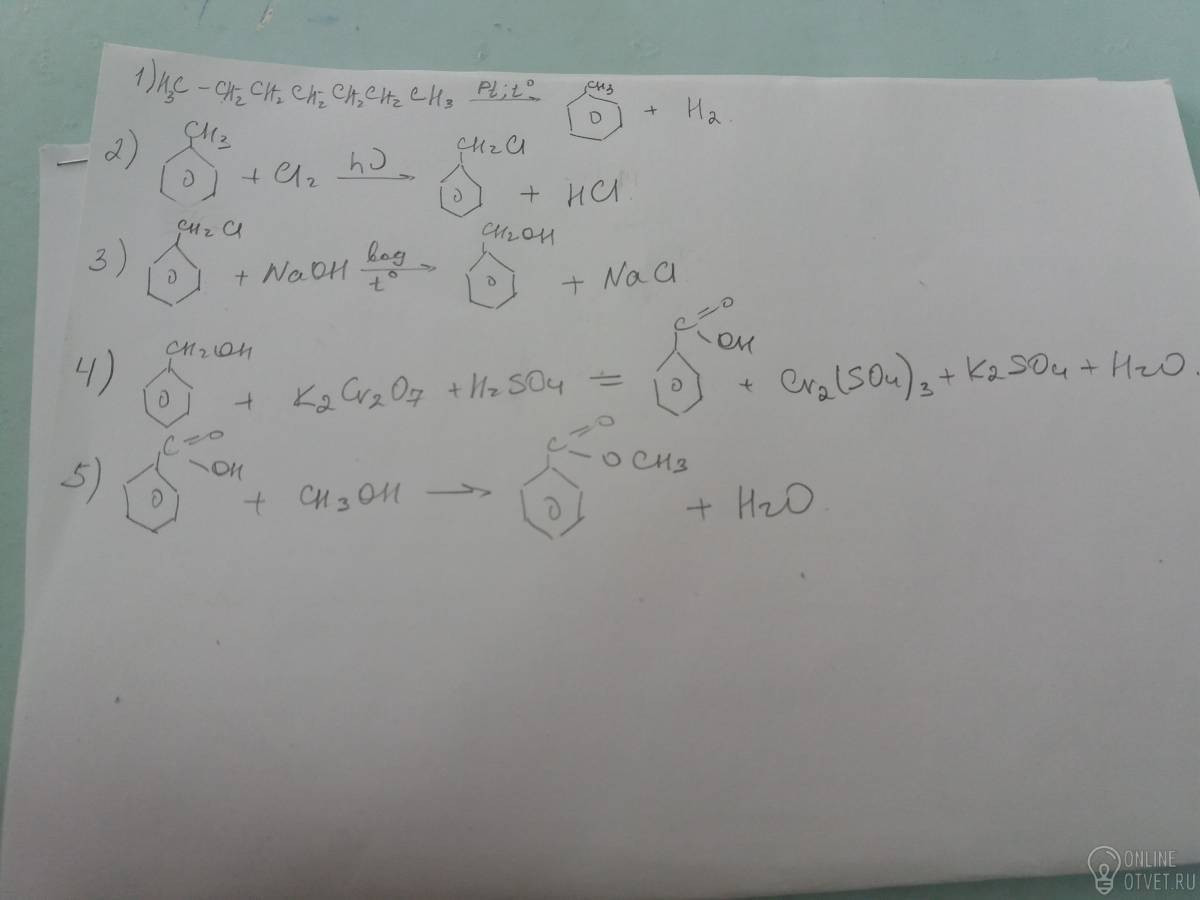 1) H3C - CH2 CH2 CH2 CH2 CH2 CH3 Pt; t° CH3 + H2.
2) CH3 + Cl2 hυ CH2Cl + HCl.
3) CH2Cl + NaOH вод t° CH2OH + NaCl
4) CH2OH + K2Cr2O7 + H2SO4 = C O OH + Cr2(SO4)3 + K2SO4 + H2O.
5) C O OH + CH3OH → C O OCH3 + H2O.
ONLINE
OTVET.RU